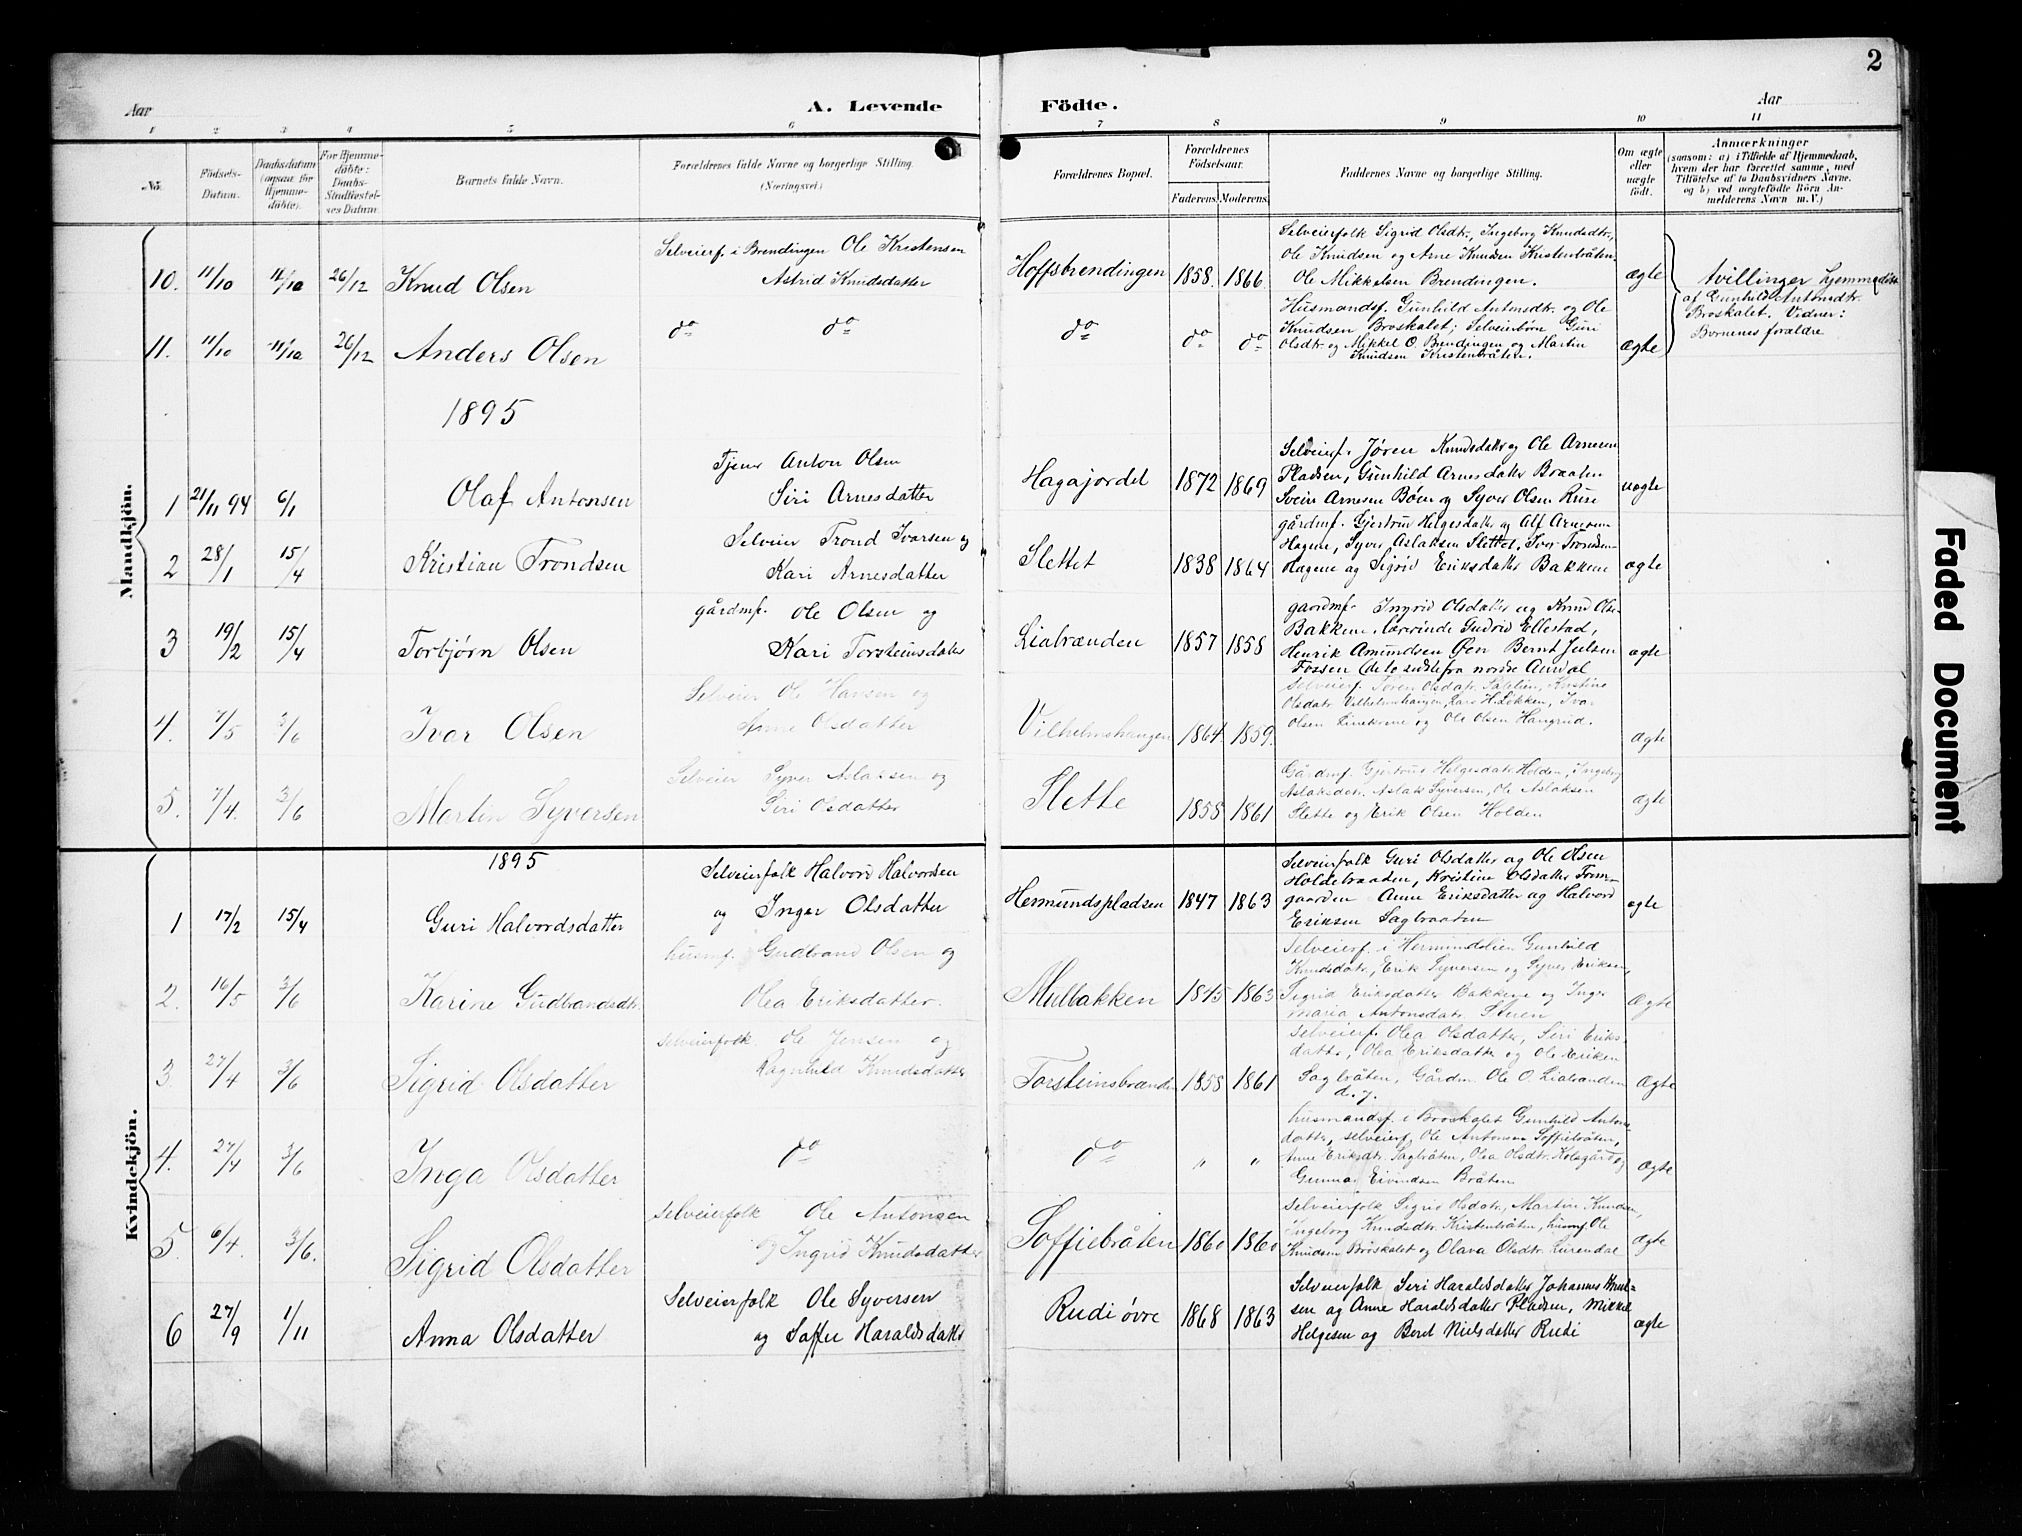 2
Aar
A. Levende Födte.
Aar
1 2 3 4 5 6 7 8 9 10 11
No.
Födsels-Datum.
Daabsdatum (ogsaa for Hjemmedöbte).
For Hjemmedöbte: Daabs-Stadfæstelses Datum.
Barnets fulde Navn.
Forældrenes fulde Navne og borgerlige Stilling. (Næringsvei)
Forældrenes Bopæl.
Forældrenes Födselsaar.
Faderens. Moderens.
Faddernes Navne og borgerlige Stilling.
Om ægte eller uægte födt.
Anmærkninger
(saasom: a) i Tilfælde af Hjemmedaab, hvem der har forrettet samme, med Tilföielse af to Daabsvidners Navne, og b) ved uægtefödte Börn Anmelderens Navn m.V.)
Mandkjön.
10. 11/10 11/10 26/12 Knud Olsen
Selveierf. i Brendingen Ole Kristensen
Astrid Knudsdatter
Hoffsbrendingen 1858. 1866
Selveierfolk Sigrid Olsdtr, Ingeborg Knudsdtr,
Ole Knudsen og Arne Knudsen Kristenbråten.
Ole Mikkelsen Brendingen.
ægte
tvillinger hjemmedöbt
af Gunhild Antonsdtr.
Broskalet. Vidner:
Bornenes forældre
11. 11/10 11/10 26/12 Anders Olsen
do do do do do
Husmandsf. Gunhild Antonsdtr. og Ole
Knudsen Broskalet; Selveierbörn Guri
Olsdtr. og Mikkel O. Brendingen og Martin
Knudsen Kristenbråten.
ægte
1895
1 21/11 94 6/1 Olaf Antonsen
Tjener Anton Olsen
Siri Arnesdatter
Hagajordet 1872 1869
Selveierf. Jøren Knudsdatter og Ole Arnesen
Pladsen, Gunhild Arnesdatter Braaten
Svein Arnesen Bøen og Syver Olsen Rure
uægte
2 28/1 15/4 Kristian Trondsen
Selveier Trond Ivarsen og
Kari Arnesdatter
Slettet 1838 1864
gårdmf. Gjertrud Helgesdatter og Alf Arnesen
Hagene, Syver Aslaksen Slettet. Ivar Trondsen
Hagene og Sigrid Eriksdatter Bakkene
ægte
3 19/2 15/4 Torbjørn Olsen
gårdmf. Ole Olsen og
Kari Torsteinsdatter
Liabrænden 1857 1858
gaardmf. Ingrid Olsdatter og Knud Olsen
Bakkene, lærerinde Gudrid Ellestad,
Henrik Amundsen Øen Bernt Julsen
Fossen (de to sidste fra nordre Aurdal
ægte
4. 7/5 3/6 Ivar Olsen
Selveier Ole Hansen og
Anne Olsdatter
Vilhelmshaugen 1864. 1859.
Selveierf. Jøren Olsdatr. Kristine
Olsdatr Vilhelmshaugen, Lars H. Løkken, Ivar
Olsen og Ole Olsen Haugrud.
ægte
5. 7/4. 3/6 Martin Syversen
Selveier Syver Aslaksen og
Siri Olsdatter
Slette 1858 1861
Gårdmf. Gjertrud Helgesdatr Holden, Ingeborg
Aslaksdatr. Aslak Syversen, Ole Aslaksen
Slette og Erik Olsen Holden
ægte
Kvindekjön.
1895
1 17/2 15/4 Guri Halvordsdatter
Selveierfolk Halvord Halvordsen
og Inger Olsdatter
Hermundspladsen 1847 1863
Selveierfolk Guri Olsdatter og Ole Olsen
Holdebraaten, Kristine Olsdatter Torm-
gaarden Anne Eriksdatter og Halvord
Eriksen Sagbraaten
ægte
2. 16/5 3/6 Karine Gudbrandsdtr.
husmf. Gudbrand Olsen og
Olea Eriksdatter.
Mulbakken 1845 1863
Selveierf. i Hermundslien Gunhild
Knudsdatr., Erik Syversen og Syver Eriksen,
Sigrid Eriksdatter Bakkene og Inger
Maria Antonsdatr. Støren
Ægte
3. 27/4 3/6 Sigrid Olsdatter
selveierfolk Ole Jensen og
Ragnhild Knudsdatter
Torsteinsbrænden 1858 1861
selveierf. Olea Olsdatter, Siri Eriks-
datter, Olea Eriksdatter og Ole Eriksen
Sagbråten, Gårdm. Ole O. Liabrænden
d. y.
Ægte
4. 27/4 3/6 Inga Olsdatter
do do " "
husmandsf. i Broskalet Gunhild Antons-
datter, selveierf. Ole Antonsen Soffiebråten,
Anne Eriksdtr. Sagbråten, Olea Olsdtr. Kolsgård og
Gunnar Eivindsen Bråten
Ægte
5. 6/4. 3/6. Sigrid Olsdatter
Selveierfolk Ole Antonsen
og Ingrid Knudsdatter
Soffiebråten 1860 1860
Selveierfolk Sigrid Olsdatr, Martin Knudsen,
Ingeborg Knudsdtr. Kristenbråten, husmf. Ole
Knudsen Broskalet og Olava Olsdtr. Lurendal
Ægte
6 27/9 1/11 Anna Olsdatter
Selveierfolk Ole Syversen
og Soffie Haraldsdatter
Rudi øvre 1868 1863
Selveierfolk Siri Haraldsdatter Johannes Knud-
sen og Anne Haraldsdatter Pladsen, Mikkel
Helgesen og Beret Nielsdatter Rudi
ægte
Faded Document